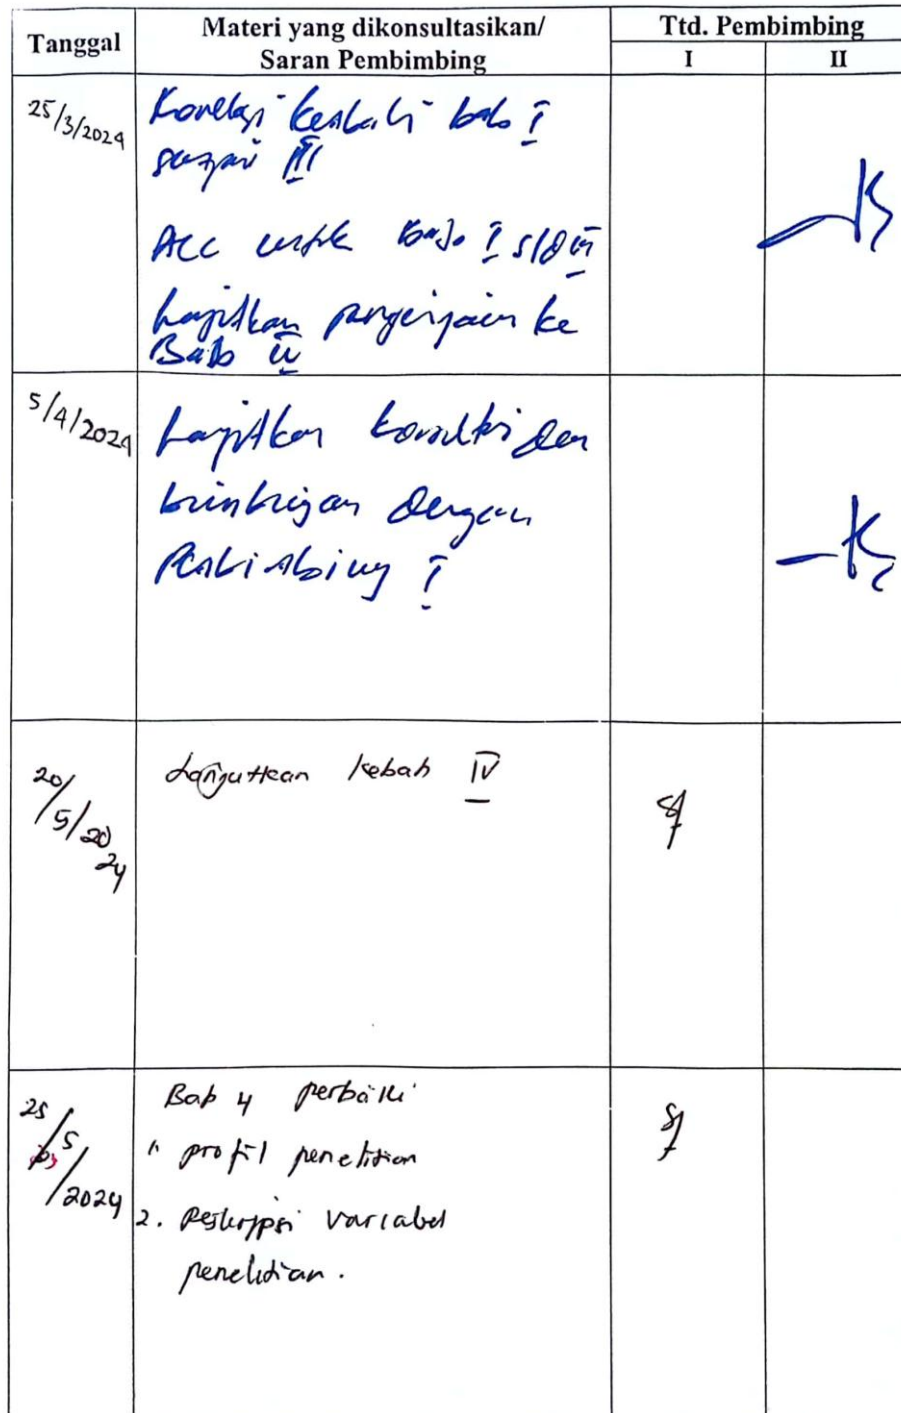 Tanggal
Materi yang dikonsultasikan/
Saran Pembimbing
Ttd. Pembimbing
I
II
25/3/2024
Koreksi kembali bab I
sampai III
Acc untuk Bab I s/d III
Lanjutkan pengerjaan ke
Bab
5/4/2024
Lanjutkan konsultasi dan
bimbingan dengan
Pembimbing I
20/5/2024
Lanjutkan kebab IV
25/5/2024
Bab 4 perbaiki
1. profil penelitian
2. Deskripsi variabel
penelitian.